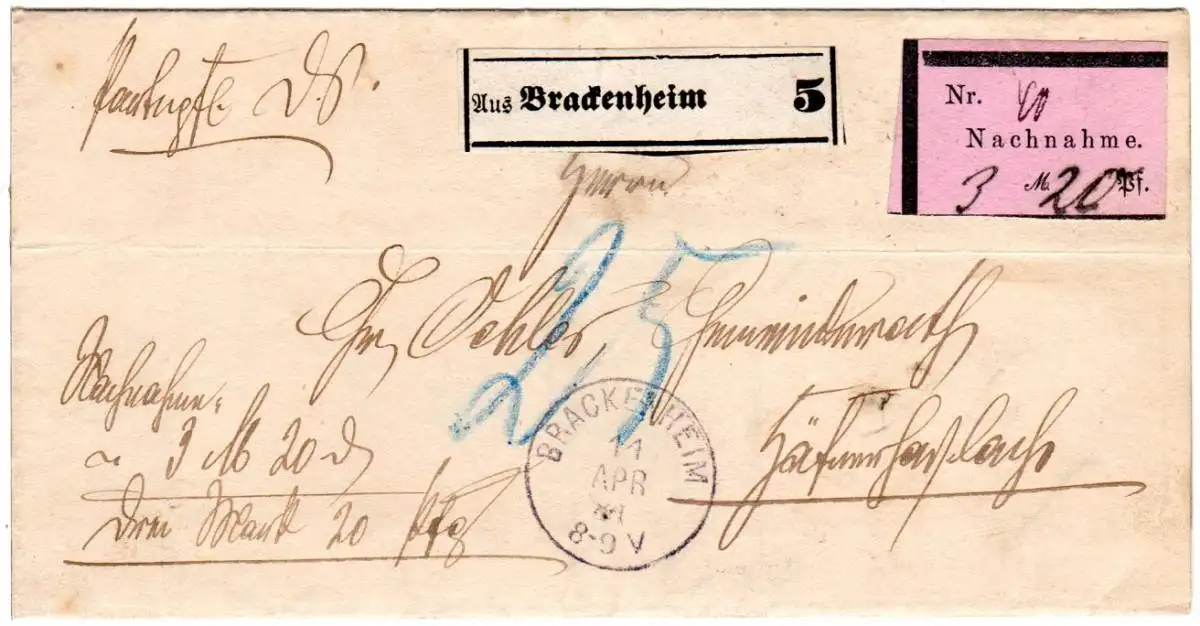 Portopfl. D.S.
Aus Brackenheim 5
Nr. 60
Nachnahme.
3 M. 20 Pf.
Herrn
25
Oehler, Gemeinderath
Häfnerhaslach
Nachnahme:
3 M 20 d
drei Mark 20 Pfg
BRACKENHEIM
11
APR
8-9 V